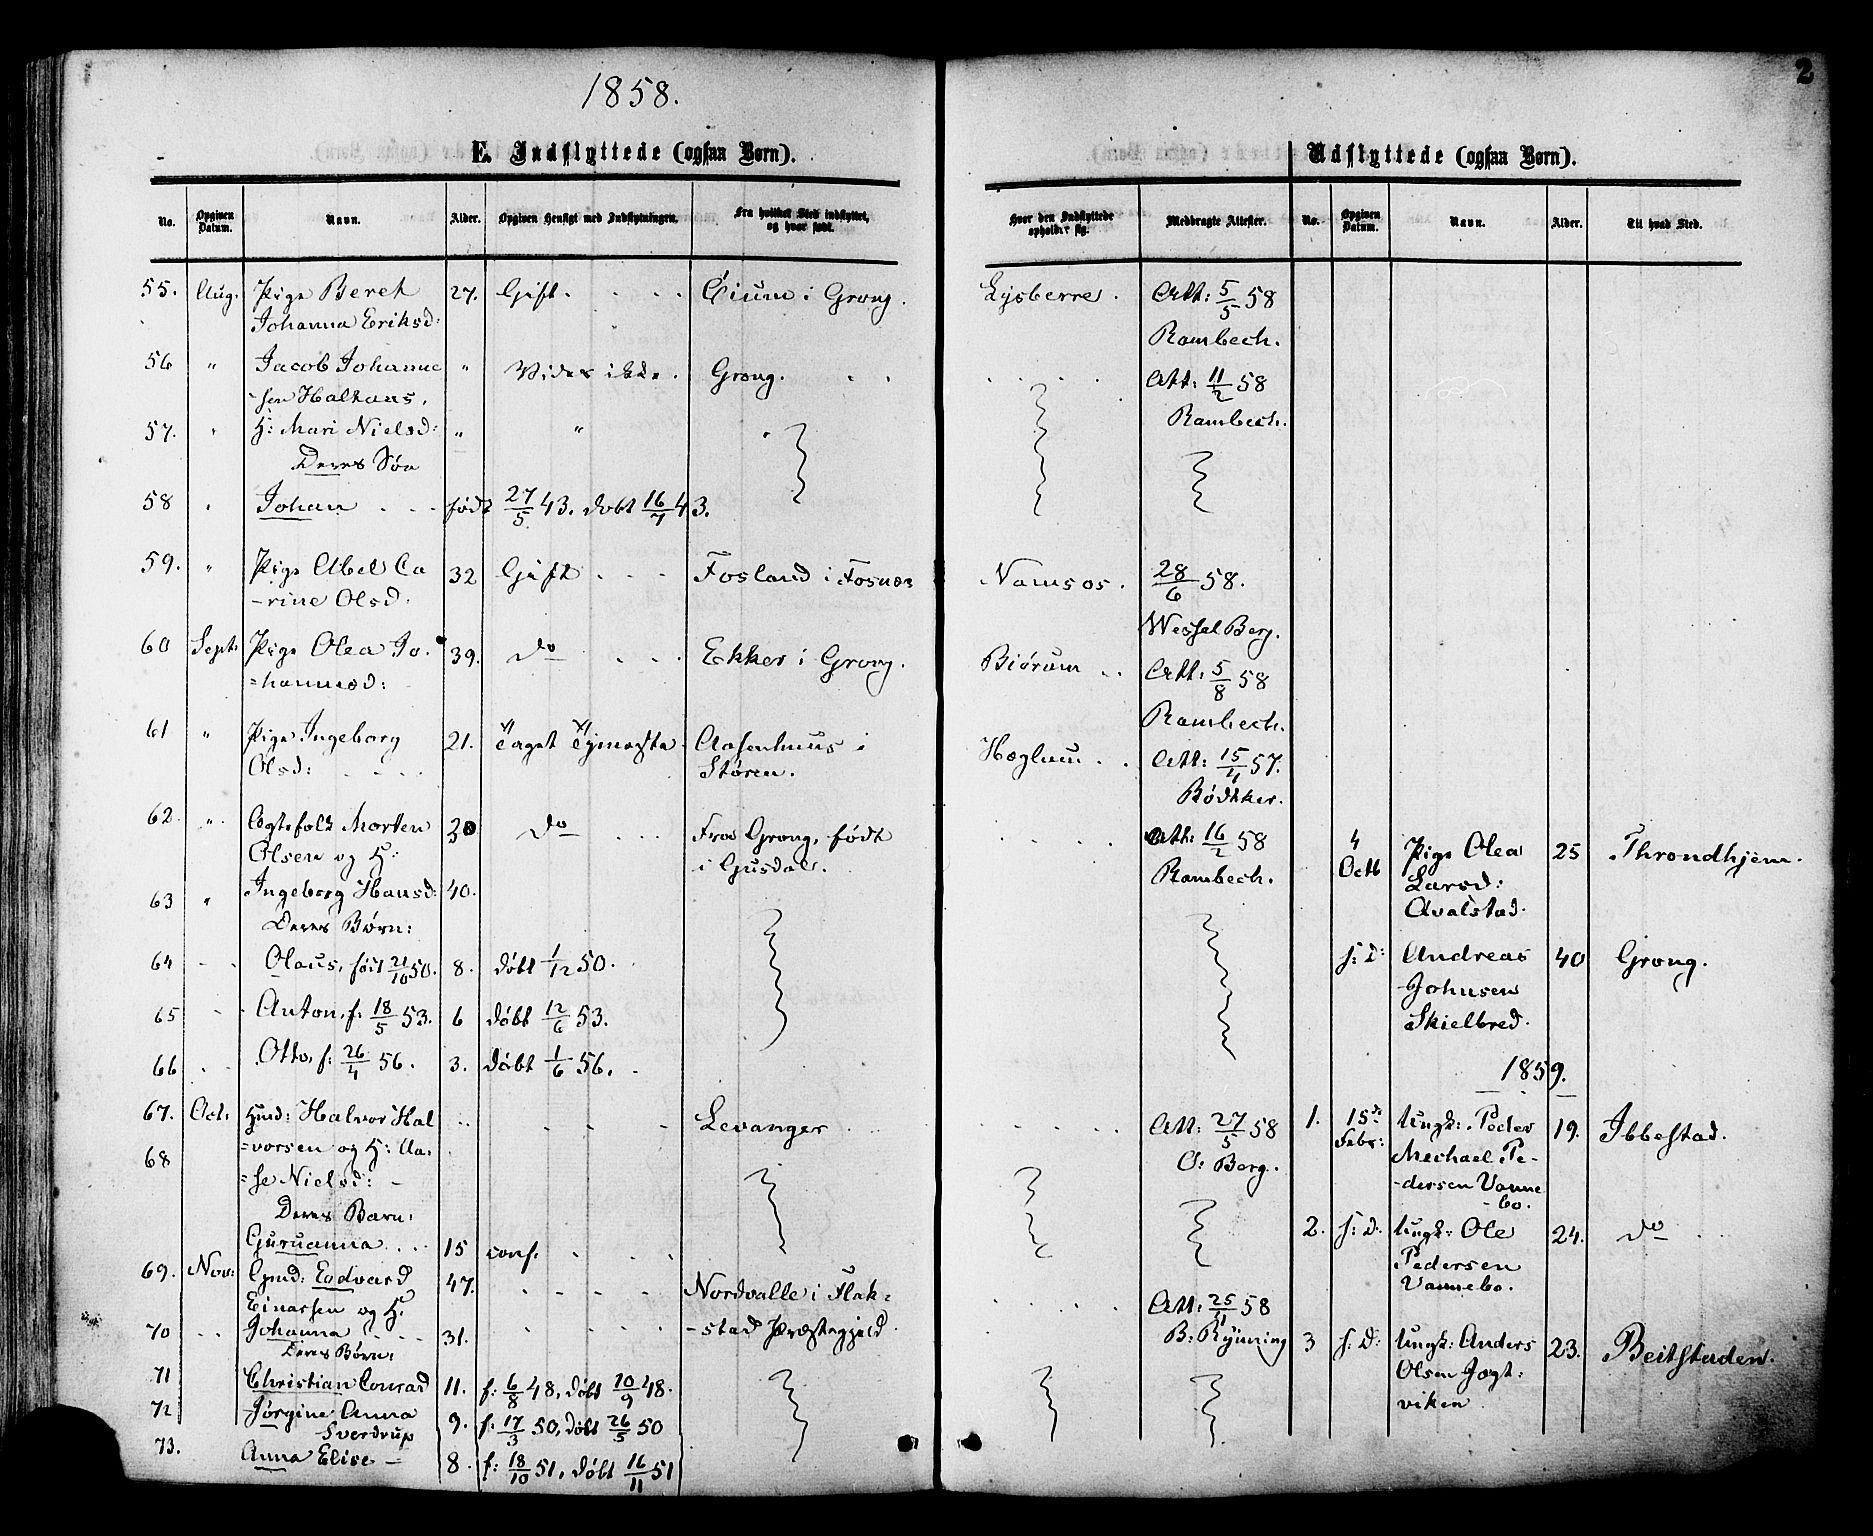 1858.
2
E. Indflyttede (ogsaa Børn).
No.
Opgiven Datum.
Navn.
Alder.
Opgiven Hensigt med Indflytningen.
Fra hvilket Sted indflyttet, og hvor født.
Hvor den Indflyttede opholder sig.
Medbragte Attester.
55. Aug. Pige Beret 27. Gift. Øium i Grong. Lysberre. Att: 5/5 58
Johanna Eriksd: Rambech.
56 " Jacob Johanne " Vides ikke. Grong. Att: 11/2 58
-sen Haltaus. Rambech.
57. " H: Mari Nielsd: " " "
Deres Søn
58 " Johan født 27/5 43. døbt 16/7 43.
59. " Pige Abel Ca 32 Gift Fosland i Fosnæs Namsos. 28/6 58.
-rine Olsd: Wessel Berg.
60 Sept: Pige Olea Jo- 39. Do Ekker i Grong. Biørum Att: 5/8 58
=hannesd: Rambech.
61 " Pige Ingeborg 21. Taget Tjeneste Aasenhuus i Høglum Att: 15/4 57.
Olsd: Støren. Bødtker.
62. " Ægtefolk Morten 30 Do Fra Grong, født Att: 16/2 58
Olsen og H: i Gusdal. Rambech.
63 " Ingeborg Hansd: 40.
Deres Børn:
64 Olaus, født 21/10 50. 8. døbt 1/12 50.
65 Anton, f. 18/5 53. 6 døbt 12/6 53.
66 Otto, f: 26/4 56. 3. døbt 1/6 56.
67. Oct: Huusd: Halvor Hal Levanger Att: 27/5 58
=vorsen og H: Aa- O: Berg.
68 =se Nielsd:
Deres Barn:
Guruanna 15 conf.
69. Nov: Gmd: Edvard 47. Nordvalle i Flak- Att: 25/11 58
Einarsen og H. -stad Præstegjeld B: Rynning
70 Johanna 31.
Deres Børn:
71 Christian Conrad 11. f: 6/8 48, døbt 10/9 48.
72 Jørgine Anna 9. f: 17/3 50, døbt 26/5 50
Sverdrup
73. Anna Elise 8. f: 18/10 51, døbt 16/11 51
Udflyttede (ogsaa Børn).
No.
Opgiven Datum.
Navn.
Alder.
Til hvad Sted.
4 Octb Pige Olea 25 Throndhjem.
Larsd:
Avalstad.
s: D: Andreas 40 Grong.
Johnsen
Skielbred.
1859.
1. 15de Febr: Ungk: Peder 19. Ibbestad.
Mechael Pe-
-dersen Vanne
-bo.
2. s: d: Ungk: Ole 24. Do
Pedersen
Vannebo.
3 s: D: Ungk: Anders 23. Beitstaden.
Olsen Jægt:
viken